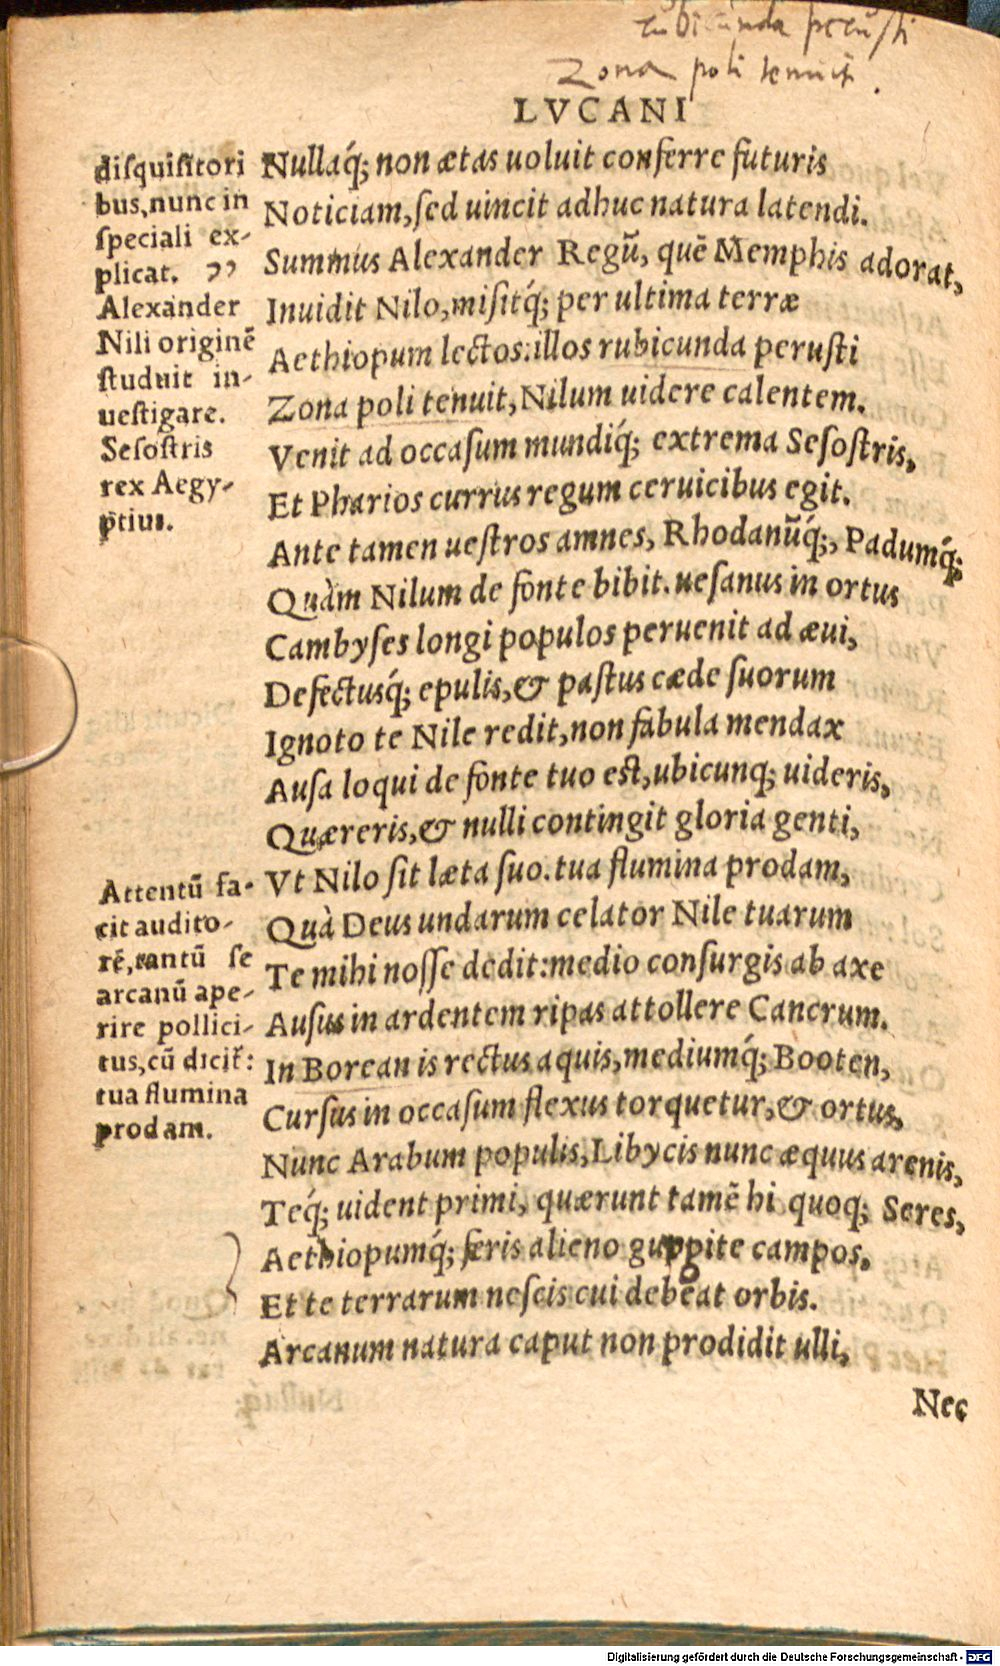 rubicunda perusti
Zona poli tenuit.
LVCANI
disquisitori
bus, nunc in
speciali ex-
plicat. ""
Alexander
Nili originē
studuit in-
uestigare.
Sesostris
rex Aegy-
ptius.
Attentū fa-
cit audito-
rē, tantū se
arcanū ape-
rire pollici-
tus, cū dicit̃:
tua flumina
prodam.
Nullaq́; non ætas uoluit conferre futuris
Noticiam, sed uincit adhuc natura latendi.
Summus Alexander Regū, quē Memphis adorat,
Inuidit Nilo, misitq́; per ultima terræ
Aethiopum lectos: illos rubicunda perusti
Zona poli tenuit, Nilum uidere calentem.
Venit ad occasum mundiq́; extrema Sesostris,
Et Pharios currus regum ceruicibus egit.
Ante tamen uestros amnes, Rhodanūq́;, Padumq́;
Quàm Nilum de fonte bibit. uesanus in ortus
Cambyses longi populos peruenit ad æui,
Defectusq́; epulis, & pastus cæde suorum
Ignoto te Nile redit, non fabula mendax
Ausa loqui de fonte tuo est, ubicunq; uideris,
Quæreris, & nulli contingit gloria genti,
Vt Nilo sit læta suo. tua flumina prodam,
Quà Deus undarum celator Nile tuarum
Te mihi nosse dedit: medio consurgis ab axe
Ausus in ardentem ripas attollere Cancrum.
In Borean is rectus aquis, mediumq́; Booten,
Cursus in occasum flexus torquetur, & ortus,
Nunc Arabum populis, Libycis nunc æquus arenis,
Teq́; uident primi, quærunt tamē hi quoq; Seres,
Aethiopumq́; feris alieno gurgite campos,
Et te terrarum nescis cui debeat orbis.
Arcanum natura caput non prodidit ulli,
Nec
Digitalisierung gefördert durch die Deutsche Forschungsgemeinschaft - DFG